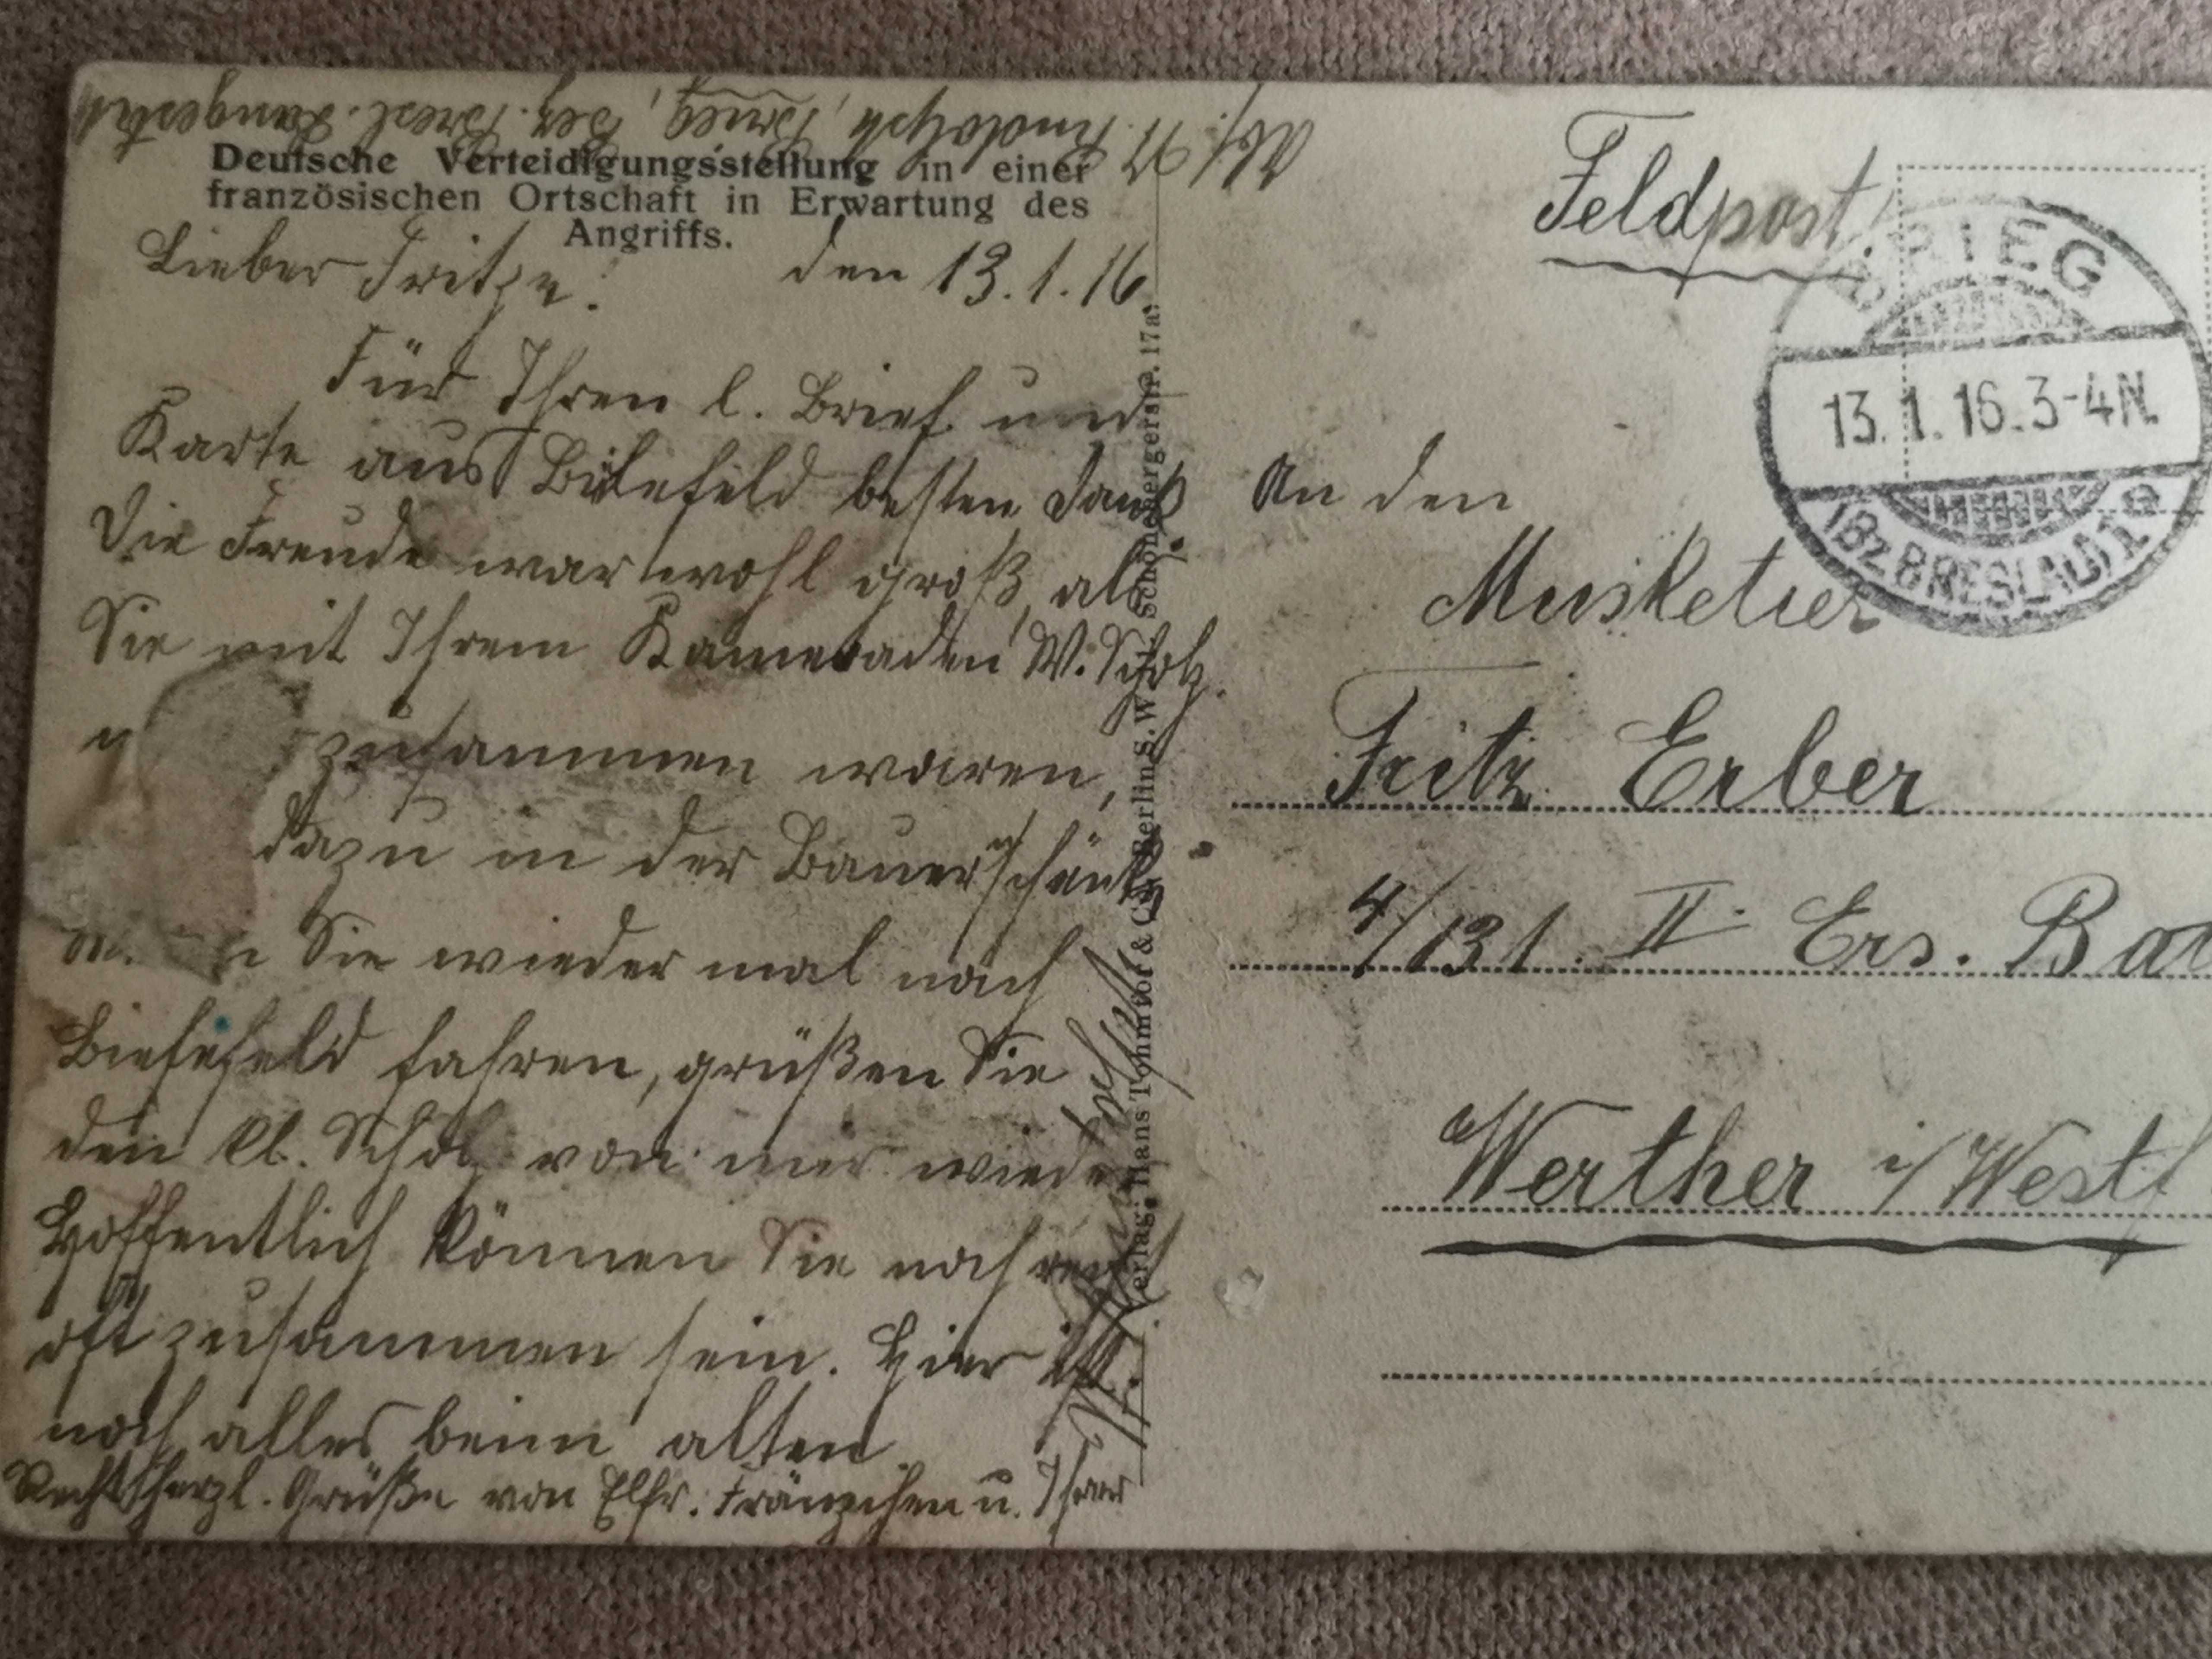 Abs. Rudolph, Brieg, Bez. Bresl. Langestr.
Deutsche Verteidigungsstellung in einer
französischen Ortschaft in Erwartung des
Angriffs.
Lieber Fritze! den 13.1.16.
Für Ihren l. Brief und
Karte aus Bielefeld besten Dank
Die Freude war wohl groß, als
Sie mit Ihrem Kameraden W. Scholz
zusammen waren,
dazu in der Bauernschänke
Sie wieder mal nach
Bielefeld fahren, grüßen Sie
den kl. Scholz von mir wieder
Hoffentlich können Sie noch recht
oft zusammen sein. Hier ist
noch alles beim alten
Recht herzl. Grüße von Elfr. Fränzchen u. Ihrer
Verlag: Hans Tohmfor & Co., Berlin S. W., Schönebergerstr. 17a.
Feldpost.
BRIEG
13.1.16.3-4N.
*(BZ BRESLAU)1e
An den
Musketier
Fritz Erber
4/131. II. Ers. Bat
Werther i/Westf